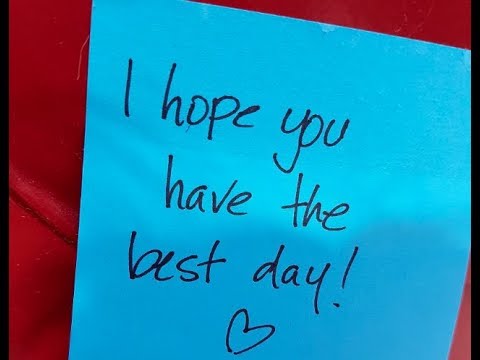 I hope you
have the
best day!
♡